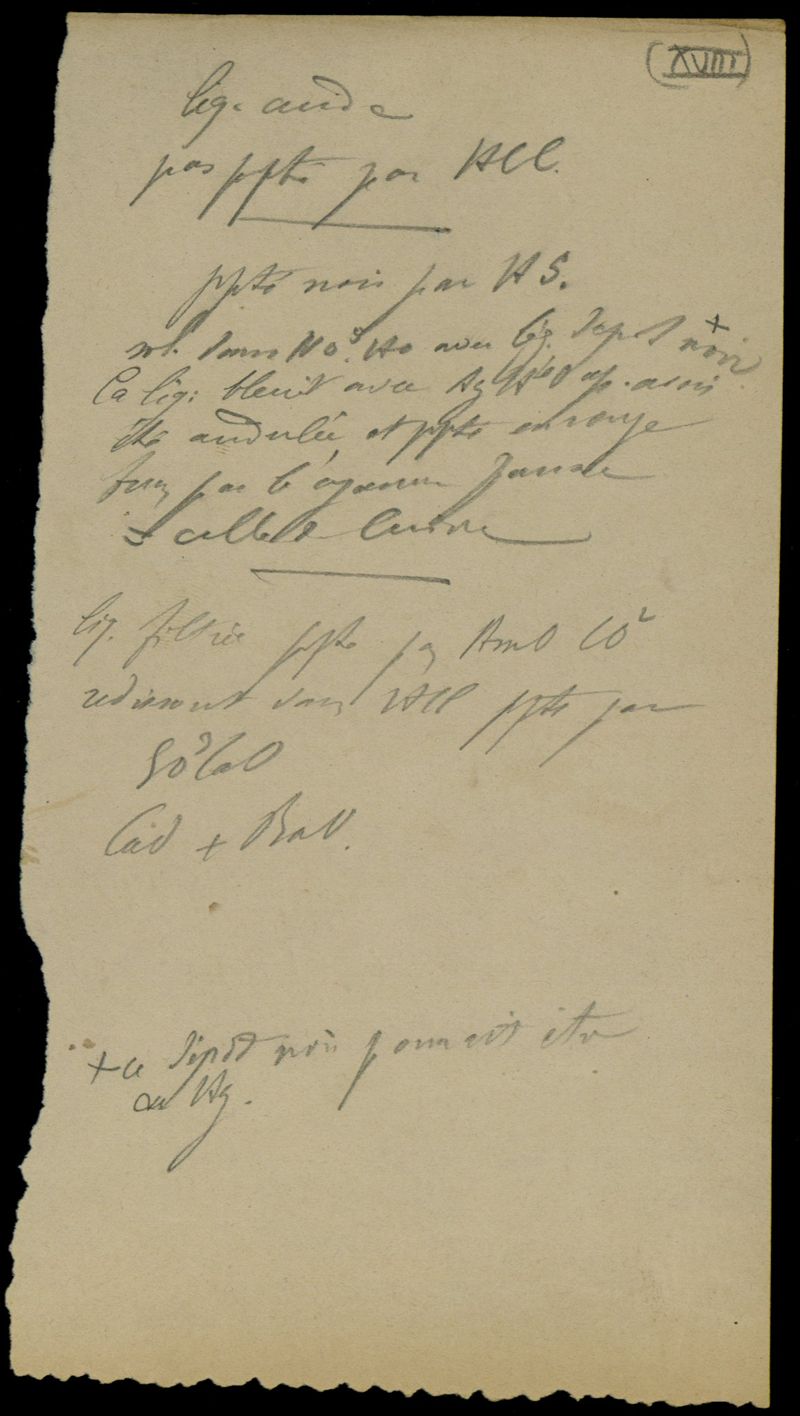 (XVIII)
liq. acide
pas ppté par HCl.
ppté noir par HS.
sol. dans NO⁵.HO avec lég. dépôt + noir
La liq. bleuit avec Az H³ ap. avoir
été acidulée, et ppté en rouge
par le cyanure jaune
= Cuivre
liq. filtrée ppté par AmO CO²
redissout dans HCl ppté par
SO³CaO
CaO + BaO.
+ ce dépôt noir pourrait être
du Hg.